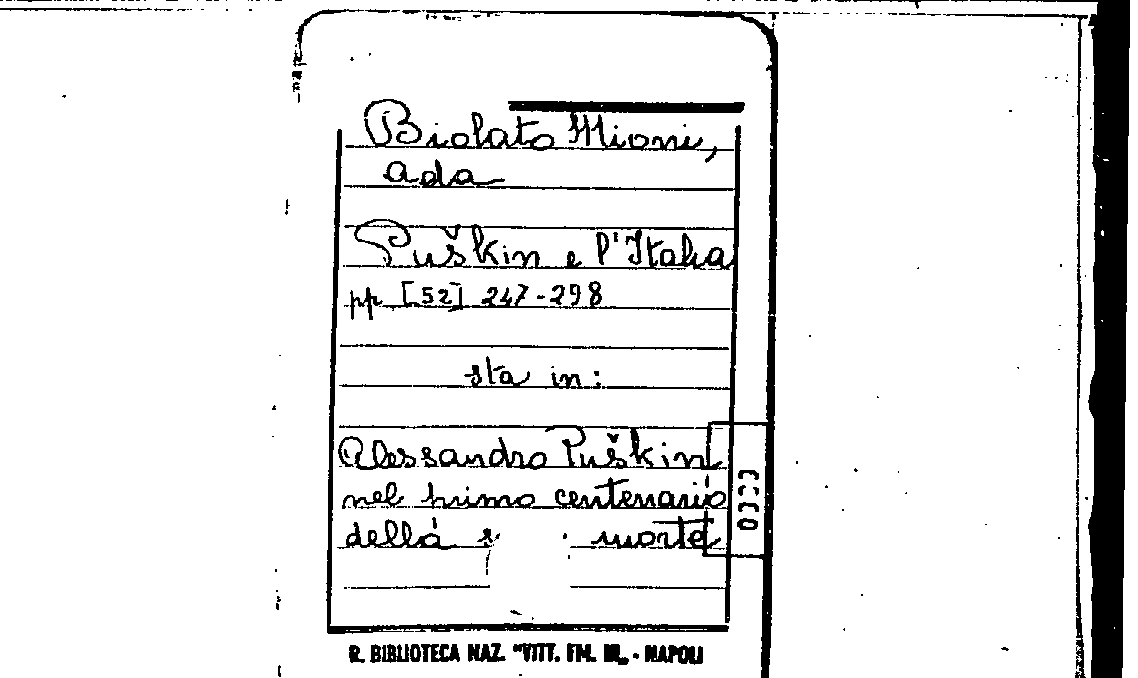 Biolato Mioni,
Ada
Puškin e l'Italia
pp [52] 247-298
sta in:
Alessandro Puškin
nel primo centenario
della morte
R. BIBLIOTECA NAZ. "VITT. EM. III„ - NAPOLI